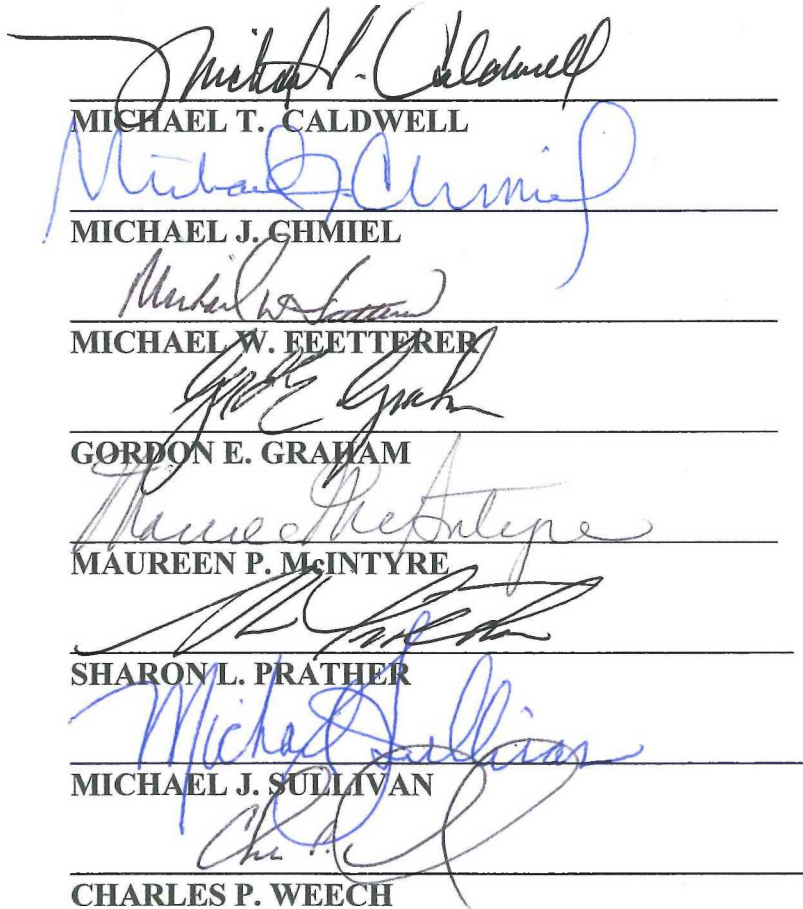 Michael T. Caldwell
MICHAEL T. CALDWELL
Michael J Chmiel
MICHAEL J. CHMIEL
Michael W
MICHAEL W. FEETTERER
E Graham
GORDON E. GRAHAM
McIntyre
MAUREEN P. McINTYRE
SHARON L. PRATHER
Michael J Sullivan
MICHAEL J. SULLIVAN
CHARLES P. WEECH